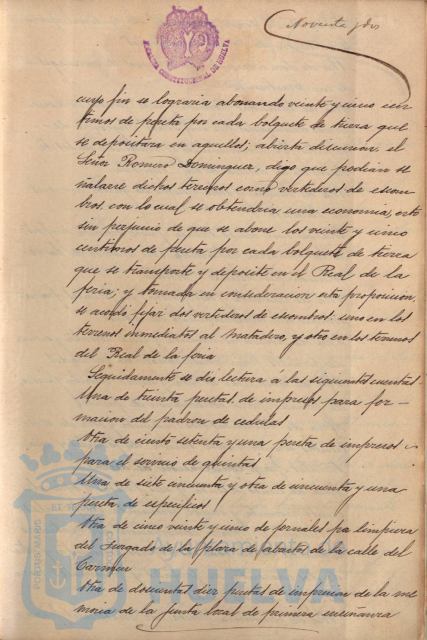 Noventa y dos
ALCALDIA CONSTITUCIONAL DE HUELVA
cuyo fin se lograria abonando veinte y cinco cen-
timos de peseta por cada bolquete de tierra que
se depositára en aquellos; abierta discusion el
Señor Romero Dominguez, digo que podian se
ñalarse dichos terrenos como vertederos de escom-
bros, con lo cual se obtendria una economia, esto
sin perjuicio de que se abone los veinte y cinco
centimos de peseta por cada bolquete de tierra
que se transporte y deposite en el Real de la
feria; y tomada en consideracion esta proposicion,
se acordó fijar dos vertederos de escombros: uno en los
terrenos inmediatos al Matadero, y otro en los terrenos
del Real de la feria
Seguidamente se dió lectura á las siguientes cuentas.
Una de treinta pesetas de impresos para for-
macion del padron de cedulas
Otra de ciento setenta y una peseta de impresos
para el servicio de quintas
Una de siete cincuenta y otra de cincuenta y una
peseta de especificos
Otra de cinco veinte y cinco de jornales pa limpieza
del Juzgado de la plaza de abastos de la calle del
Carmen
Otra de doscientas diez pesetas de impresion de la me
moria de la Junta local de primera enseñanza
PORTUS MARIS ET TERRAE
Ayuntamiento de
HUELVA